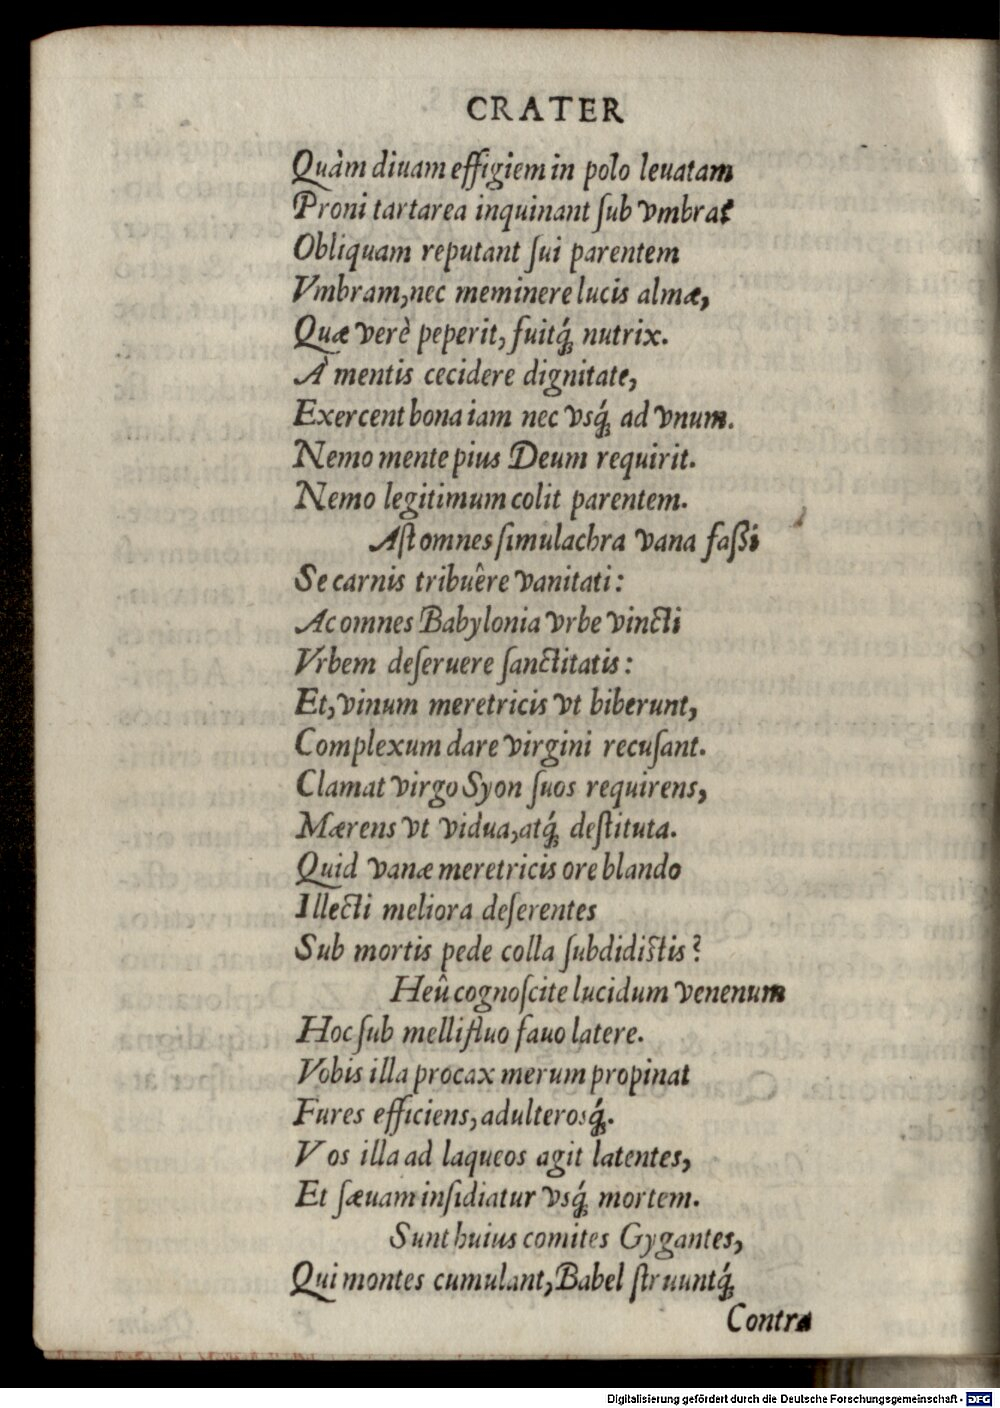 CRATER
Quàm diuam effigiem in polo leuatam
Proni tartarea inquinant ſub vmbra:
Obliquam reputant ſui parentem
Vmbram, nec meminere lucis almæ,
Quæ verè peperit, fuitq́; nutrix.
À mentis cecidere dignitate,
Exercent bona iam nec vsq́; ad vnum.
Nemo mente pius Deum requirit.
Nemo legitimum colit parentem.
Aſt omnes ſimulachra vana faßi
Se carnis tribuêre vanitati:
Ac omnes Babylonia vrbe vincti
Vrbem deſeruere ſanctitatis:
Et, vinum meretricis vt biberunt,
Complexum dare virgini recuſant.
Clamat virgo Syon ſuos requirens,
Mærens vt vidua, atq́; deſtituta.
Quid vanæ meretricis ore blando
Illecti meliora deſerentes
Sub mortis pede colla ſubdidiſtis?
Heû cognoſcite lucidum venenum
Hoc ſub mellifluo fauo latere.
Vobis illa procax merum propinat
Fures efficiens, adulterosq́;.
Vos illa ad laqueos agit latentes,
Et ſæuam inſidiatur vsq́; mortem.
Sunt huius comites Gygantes,
Qui montes cumulant, Babel ſtruuntq́;
Contra
Digitalisierung gefördert durch die Deutsche Forschungsgemeinschaft - DFG